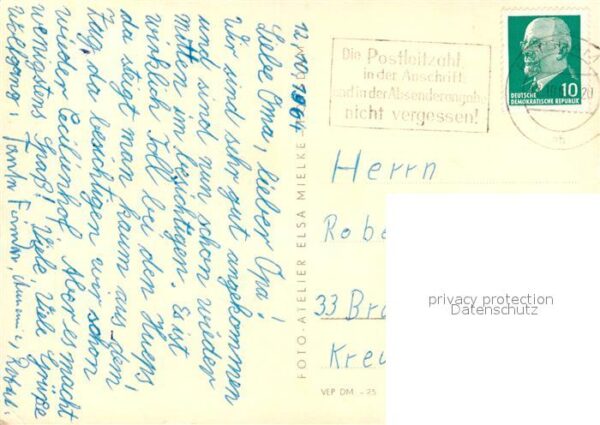 12.10.1964
Liebe Oma, lieber Opa!
Wir sind sehr gut angekommen
und sind nun schon wieder
mitten im besichtigen. Es ist
wirklich toll bei den Hueps,
da steigt man kaum aus dem
Zug, da besichtigen wir schon
wieder Cecilienhof. Aber es macht
wenigstens Spaß! Viele, viele Grüße
Wolfgang
FOTO-ATELIER ELSA MIELKE
Die Postleitzahl
in der Anschrift
und in der Absenderangabe
nicht vergessen!
10
DEUTSCHE
DEMOKRATISCHE REPUBLIK
Herrn
Robe
33 Br
Kreu
VEP DM -.25
privacy protection
Datenschutz